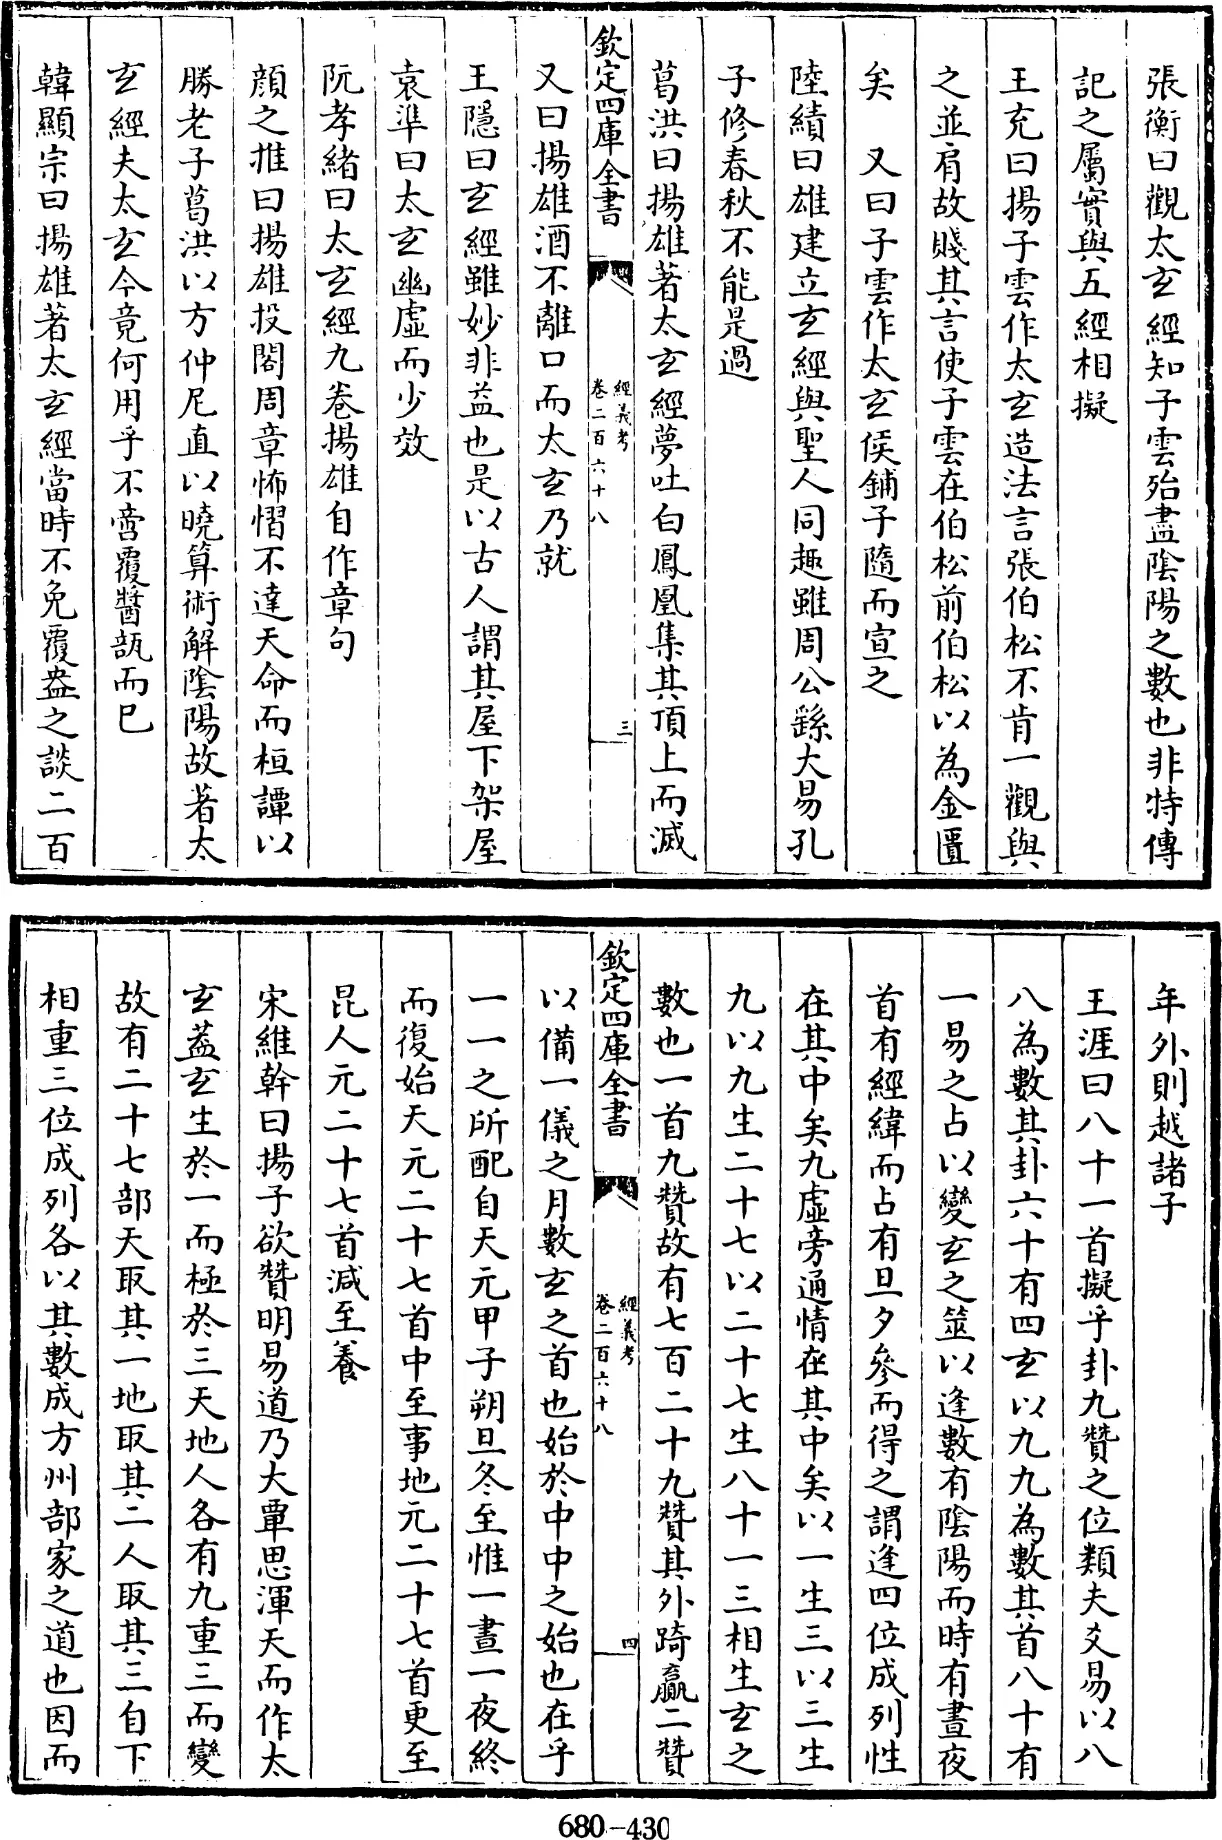 張衡曰觀太玄經知子雲殆盡陰陽之數也非特傳
記之屬實與五經相擬
王充曰揚子雲作太玄造法言張伯松不肯一觀與
之並肩故賤其言使子雲在伯松前伯松以為金匱
矣　又曰子雲作太玄侯鋪子隨而宣之
陸績曰雄建立玄經與聖人同趣雖周公繇大易孔
子修春秋不能是過
葛洪曰揚雄著太玄經夢吐白鳳凰集其頂上而滅
欽定四庫全書
經義考
卷二百六十八
三
又曰揚雄酒不離口而太玄乃就
王隱曰玄經雖妙非益也是以古人謂其屋下架屋
袁準曰太玄幽虛而少效
阮孝緒曰太玄經九卷揚雄自作章句
顔之推曰揚雄投閣周章怖慴不達天命而桓譚以
勝老子葛洪以方仲尼直以曉算術解陰陽故著太
玄經夫太玄今竟何用乎不啻覆醬瓿而已
韓顯宗曰揚雄著太玄經當時不免覆盎之談二百
年外則越諸子
王涯曰八十一首擬乎卦九贊之位類夫爻易以八
八為數其卦六十有四玄以九九為數其首八十有
一易之占以變玄之筮以逢數有陰陽而時有晝夜
首有經緯而占有旦夕參而得之謂逢四位成列性
在其中矣九虛旁通情在其中矣以一生三以三生
九以九生二十七以二十七生八十一三相生玄之
數也一首九贊故有七百二十九贊其外踦贏二贊
欽定四庫全書
經義考
卷二百六十八
四
以備一儀之月數玄之首也始於中中之始也在乎
一一之所配自天元甲子朔旦冬至惟一晝一夜終
而復始天元二十七首中至事地元二十七首更至
昆人元二十七首減至養
宋維幹曰揚子欲贊明易道乃大覃思渾天而作太
玄蓋玄生於一而極於三天地人各有九重三而變
故有二十七部天取其一地取其二人取其三自下
相重三位成列各以其數成方州部家之道也因而
680-430